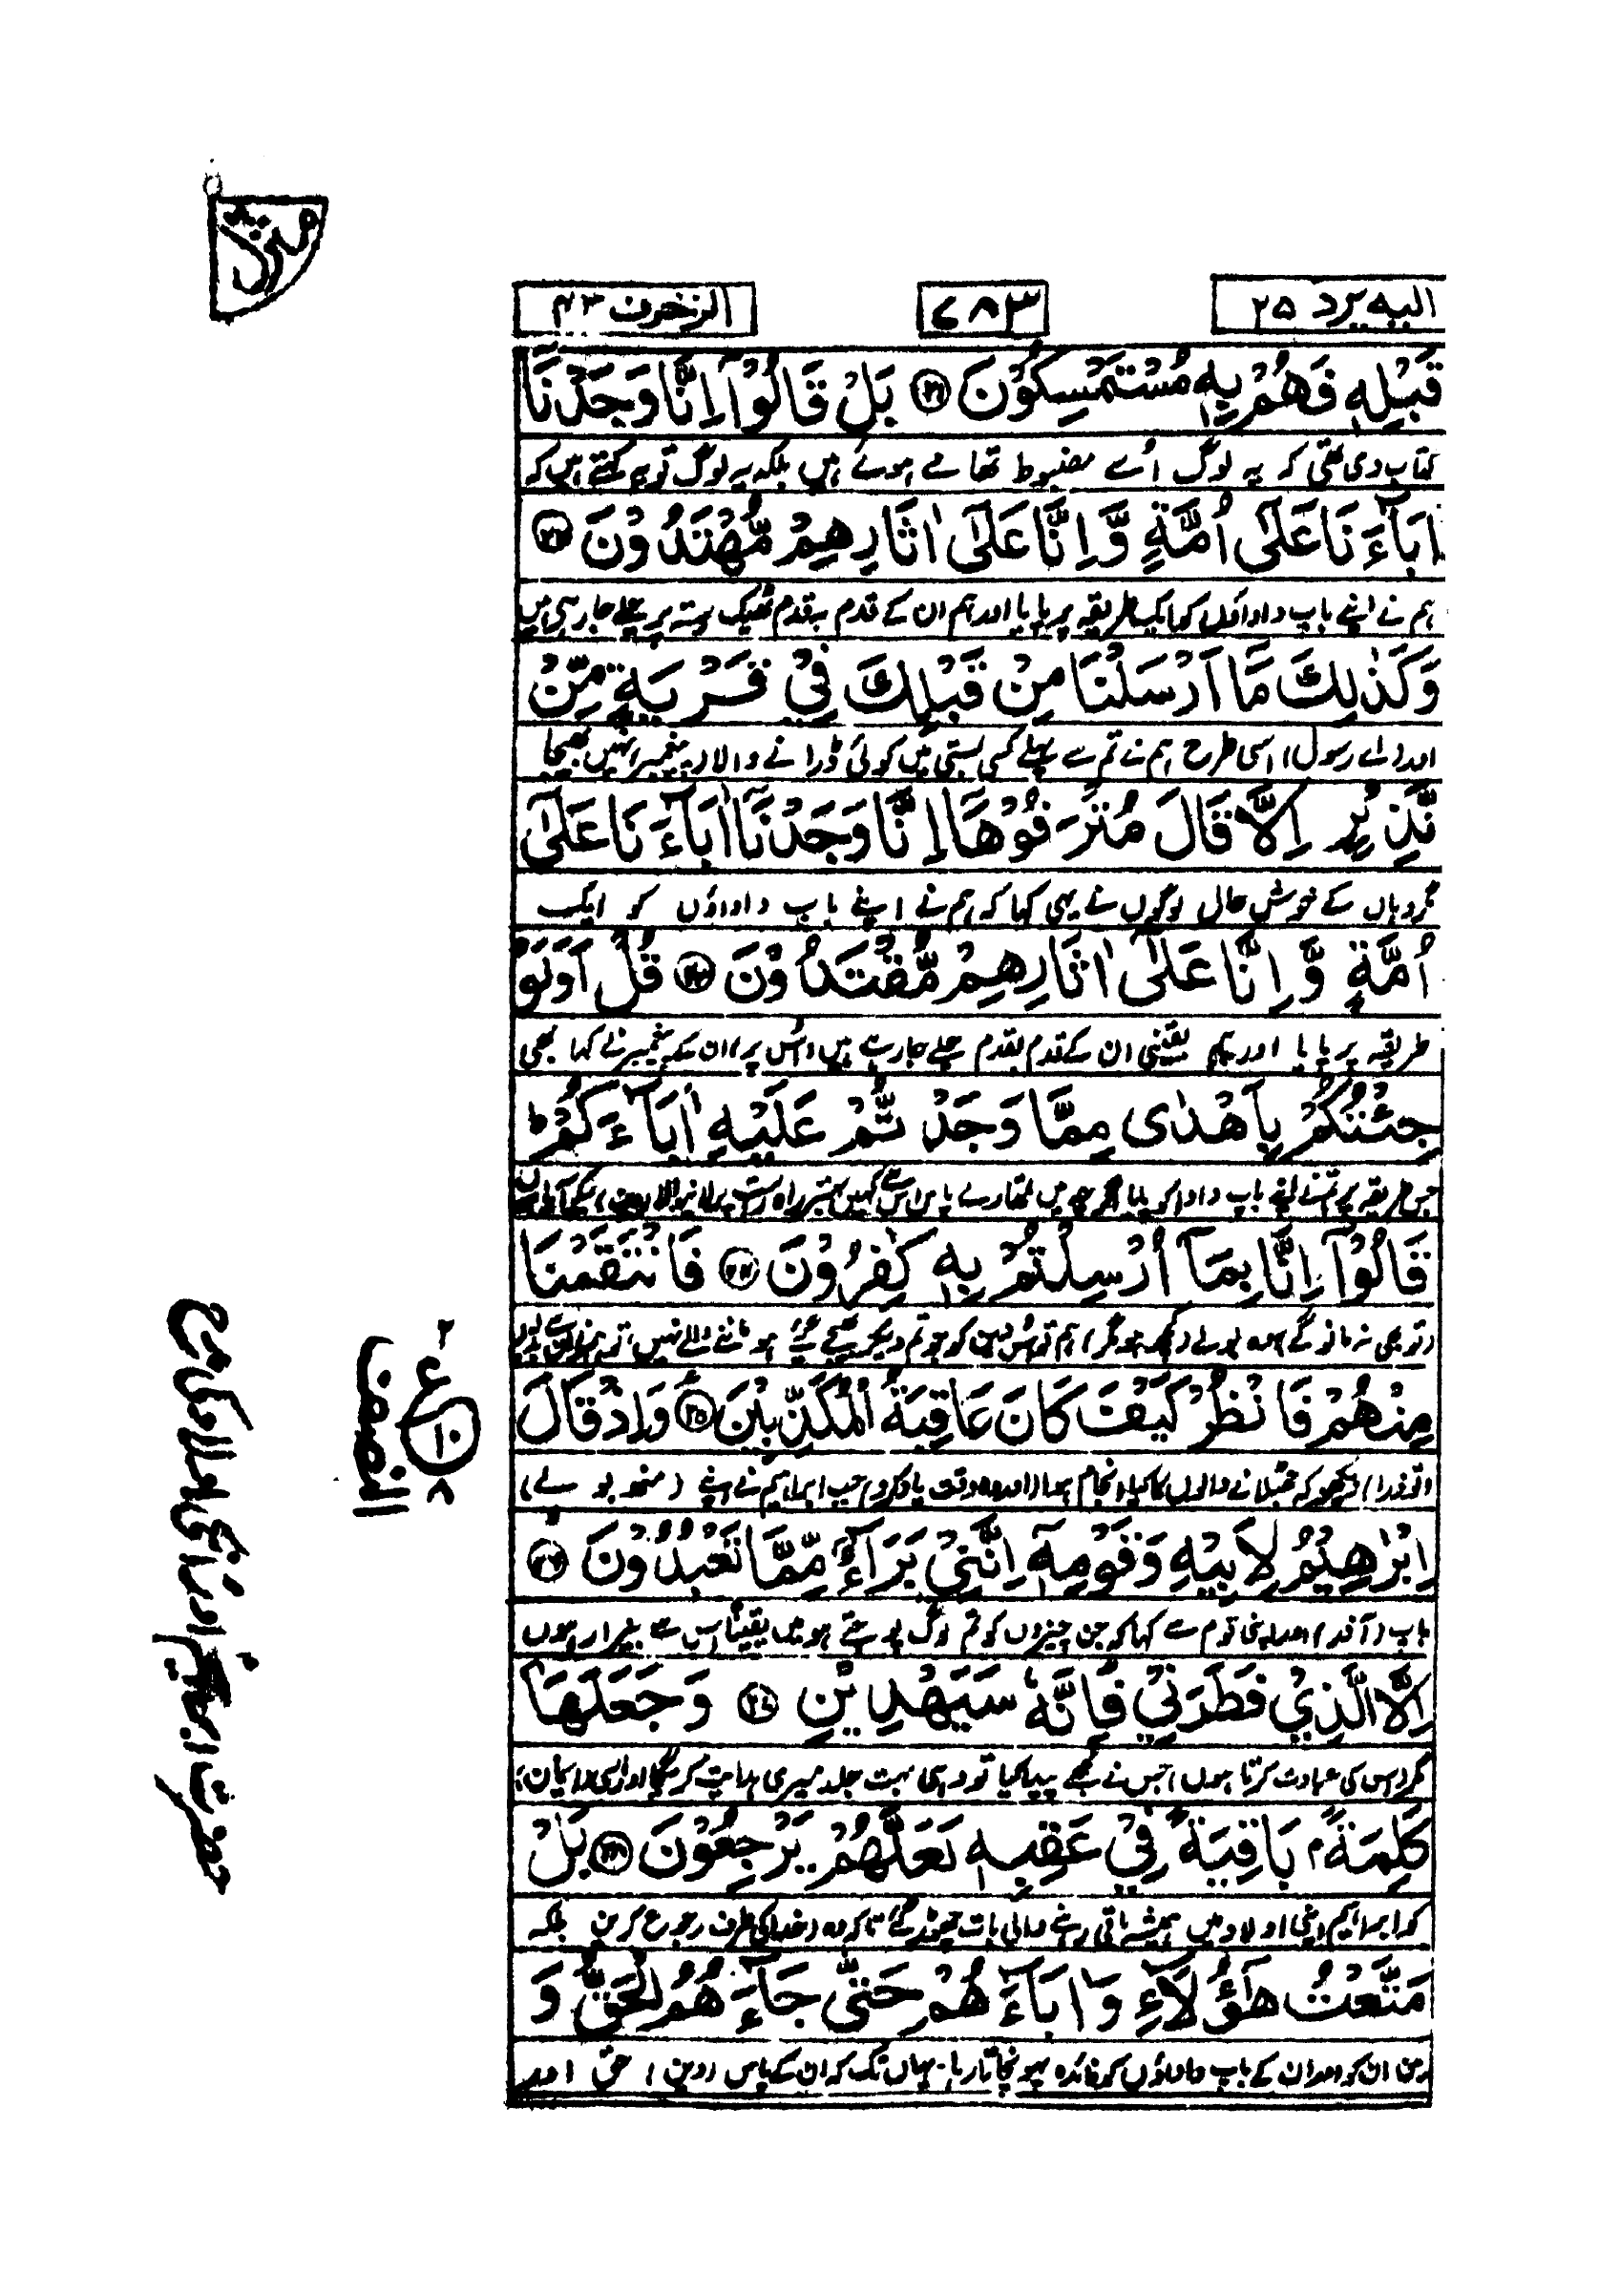 الیه یرد ۲۵
۷۸۳
الزخرف ۴۳
قَبْلِهٖ فَهُمْ بِهٖ مُسْتَمْسِكُوْنَ ۲۱ بَلْ قَالُوْۤا اِنَّا وَجَدْنَاۤ
کتاب دی تھی کہ یہ لوگ اُسے مضبوط تھامے ہوئے ہیں بلکہ یہ لوگ تو یہ کہتے ہیں کہ
اٰبَآءَنَا عَلٰۤى اُمَّةٍ وَّ اِنَّا عَلٰۤى اٰثٰرِهِمْ مُّهْتَدُوْنَ ۲۲
ہم نے اپنے باپ داداؤں کو ایک طریقہ پر پایا اور ہم ان کے قدم بقدم ٹھیک رستہ پر چلے جا رہے ہیں
وَكَذٰلِكَ مَاۤ اَرْسَلْنَا مِنْ قَبْلِكَ فِيْ قَرْيَةٍ مِّنْ
اور (اے رسول) اسی طرح ہم نے تم سے پہلے کسی بستی میں کوئی ڈرانے والا (پیغمبر) نہیں بھیجا
نَّذِيْرٍ اِلَّا قَالَ مُتْرَفُوْهَاۤ اِنَّا وَجَدْنَاۤ اٰبَآءَنَا عَلٰۤى
مگر وہاں کے خوش حال لوگوں نے یہی کہا کہ ہم نے اپنے باپ داداؤں کو ایک
اُمَّةٍ وَّ اِنَّا عَلٰۤى اٰثٰرِهِمْ مُّقْتَدُوْنَ ۲۳ قُلْ اَوَلَوْ
طریقہ پر پایا اور ہم یقینی ان کے قدم بقدم چلے جا رہے ہیں (اس پر) ان کے پیغمبر نے کہا بھی
جِئْتُكُمْ بِاَهْدٰى مِمَّا وَجَدْتُّمْ عَلَيْهِ اٰبَآءَكُمْ ط
جس طریقہ پر تم نے اپنے باپ دادا کو پایا اگرچہ میں تمھارے پاس اس سے کہیں بہتر راہ راست پر لانیوالا دین لے کے آیا ہوں
قَالُوْۤا اِنَّا بِمَاۤ اُرْسِلْتُمْ بِهٖ كٰفِرُوْنَ ۲۴ فَانْتَقَمْنَا
مِنْهُمْ فَانْظُرْ كَيْفَ كَانَ عَاقِبَةُ الْمُكَذِّبِيْنَ ۲۵ وَاِذْ قَالَ
(تو ذرا) دیکھو کہ جھٹلانے والوں کا کیا انجام ہوا (اور وہ وقت یاد کرو) جب ابراہیم نے اپنے (منھ بولے)
اِبْرٰهِيْمُ لِاَبِيْهِ وَقَوْمِهٖۤ اِنَّنِيْ بَرَآءٌ مِّمَّا تَعْبُدُوْنَ ۲۶
باپ (آذر) اور اپنی قوم سے کہا کہ جن چیزوں کو تم لوگ پوجتے ہو میں یقیناً اس سے بیزار ہوں
اِلَّا الَّذِيْ فَطَرَنِيْ فَاِنَّهٗ سَيَهْدِيْنِ ۲۷ وَجَعَلَهَا
مگر (اس کی عبادت کرتا ہوں) جس نے مجھے پیدا کیا تو وہی بہت جلد میری ہدایت کریگا اور اسی (ایمان)
كَلِمَةًۢ بَاقِيَةً فِيْ عَقِبِهٖ لَعَلَّهُمْ يَرْجِعُوْنَ ۲۸ بَلْ
کو ابراہیم اپنی اولاد میں ہمیشہ باقی رہنے والی بات چھوڑ گئے تاکہ وہ (خدا کی طرف) رجوع کریں بلکہ
مَتَّعْتُ هٰۤؤُلَآءِ وَاٰبَآءَهُمْ حَتّٰى جَآءَهُمُ الْحَقُّ وَ
میں ان کو اور ان کے باپ داداؤں کو فائدہ پہونچاتا رہا۔ یہاں تک کہ ان کے پاس (دین) حق اور
منزل
النصف
۲
ع
۱۰
۸